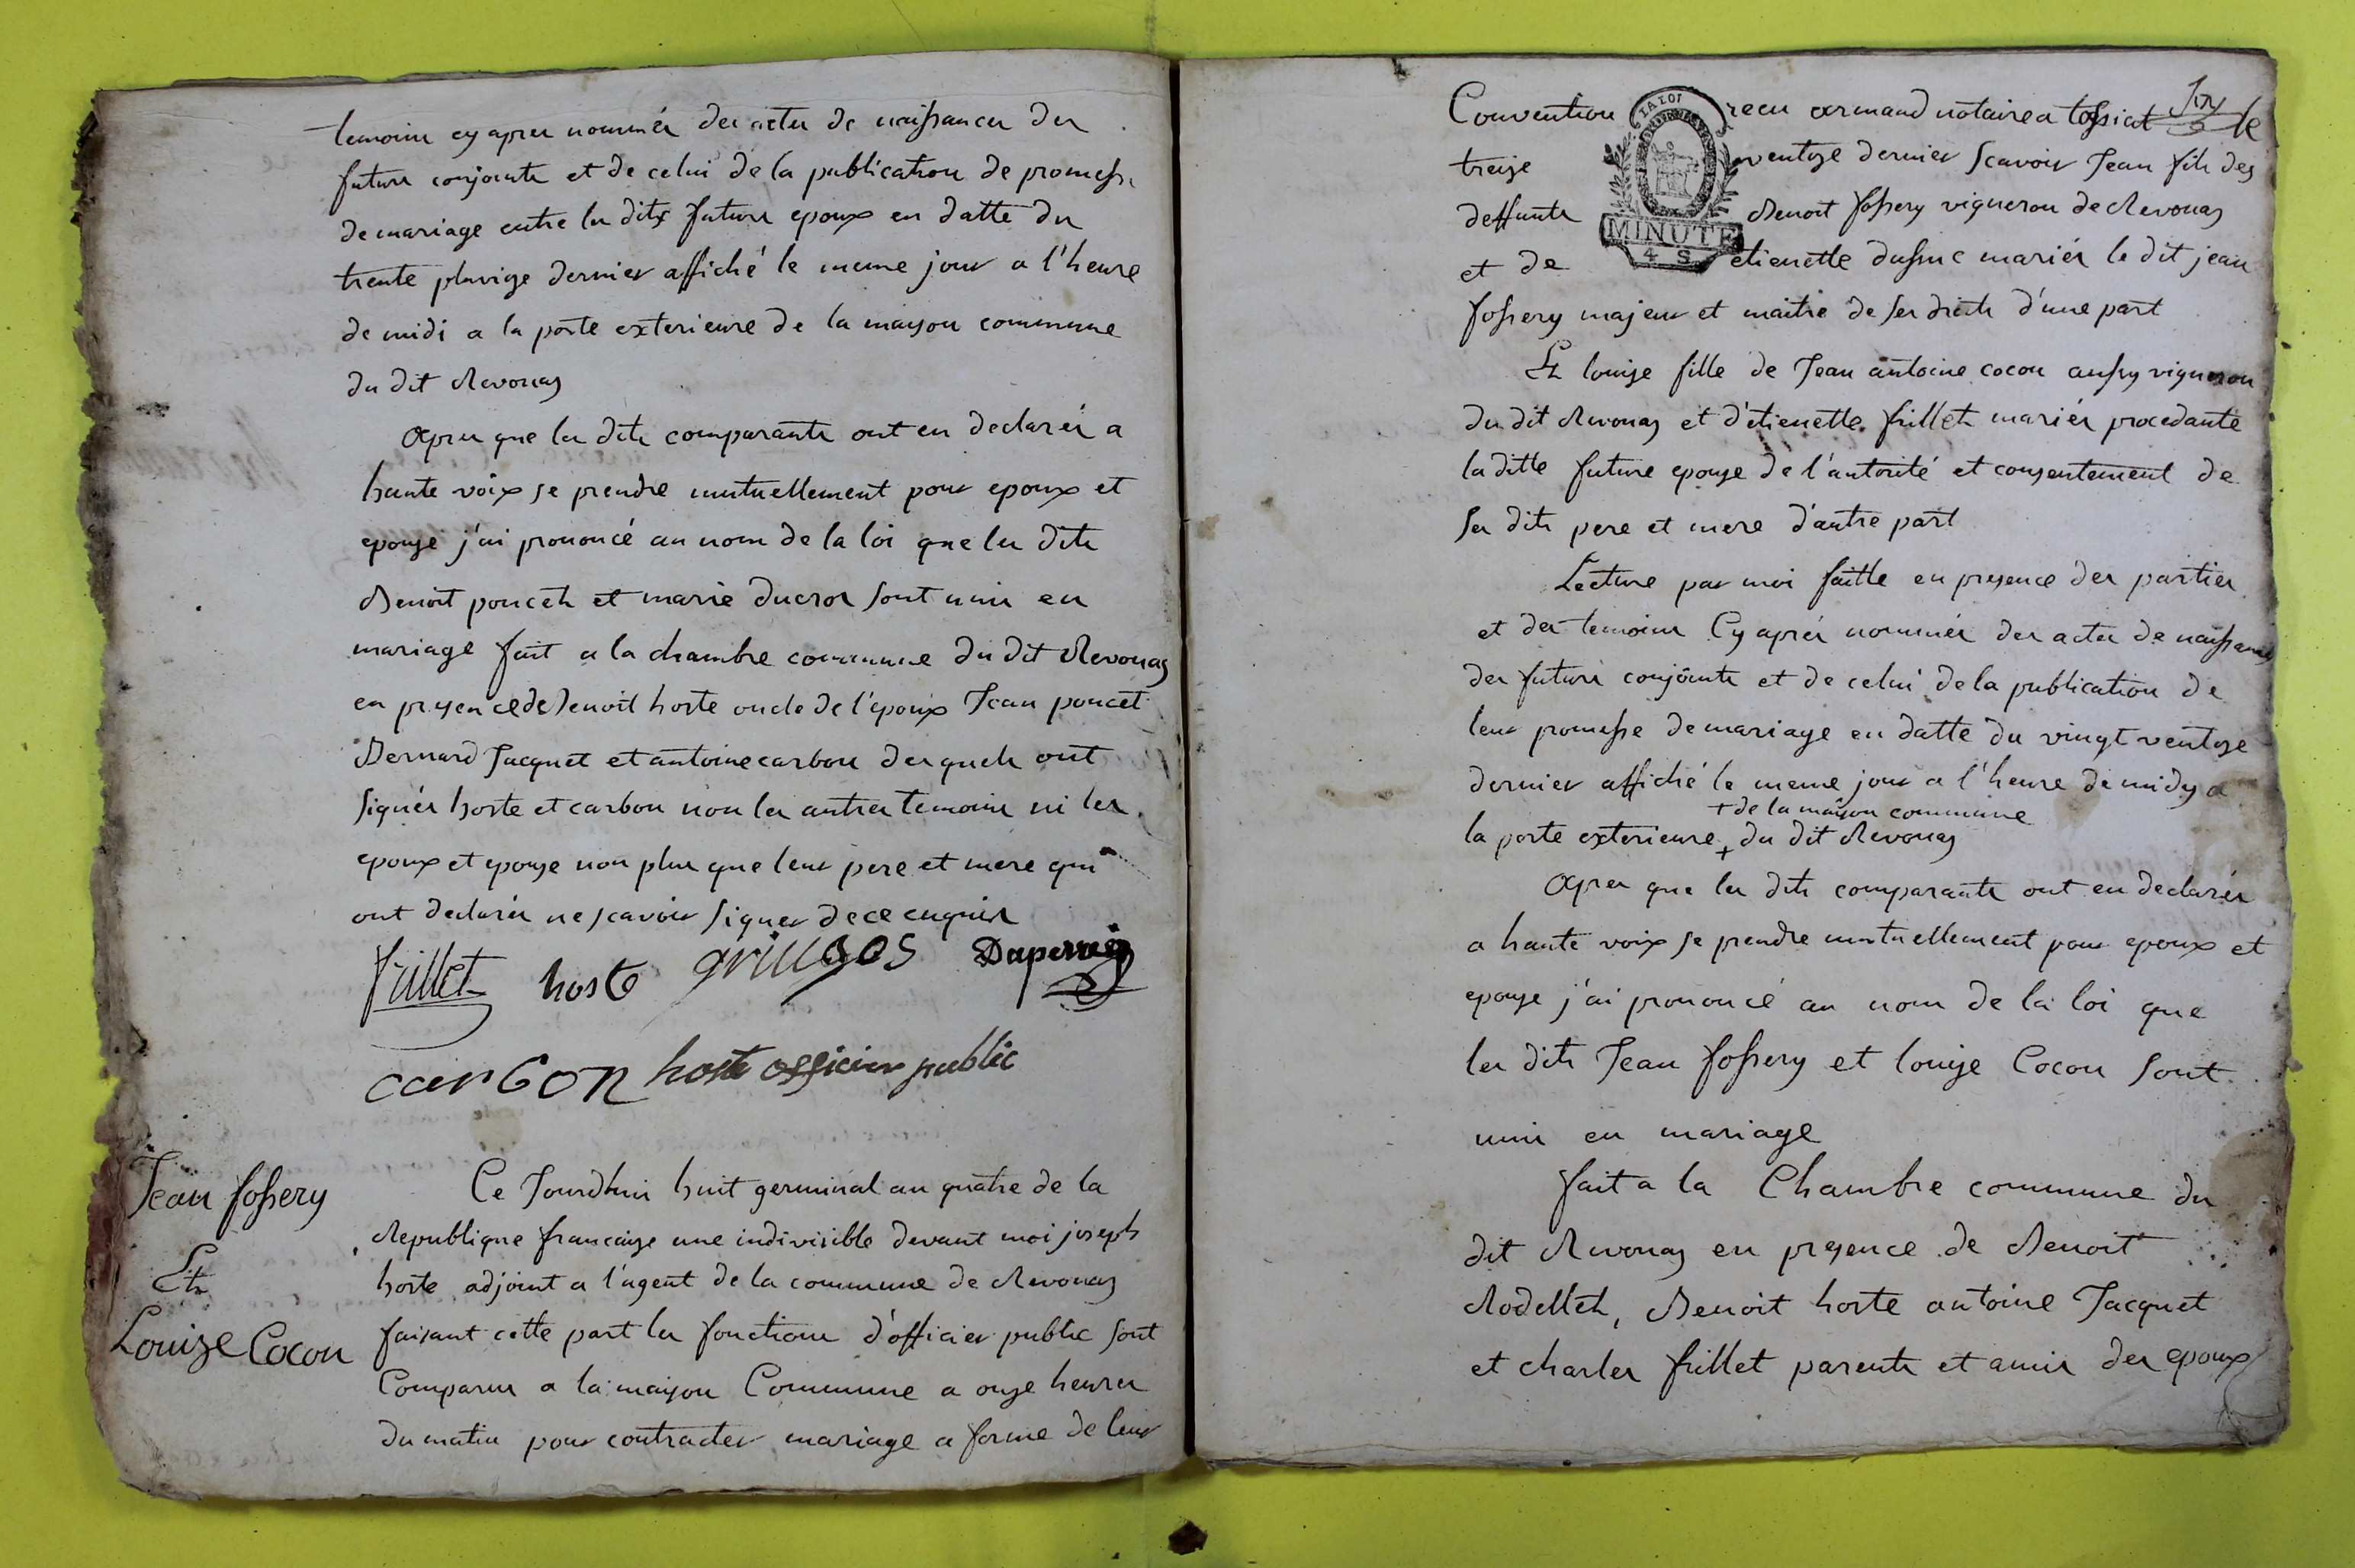 temoins cy apres nommés des actes de naissances des
futurs conjoints et de celui de la publication de promesse
de mariage entre les dits futurs epoux en datte du
trente pluviose dernier affiché le meme jour a l'heure
de midi a la porte exterieure de la maison commune
du dit Revonas
Apres que les dits comparants ont eu declarés a
haute voix se prendre mutuellement pour epoux et
epouse j'ai prononcé au nom de la loi que les dits
Benoit poncet et marie ducros sont unis en
mariage fait a la chambre commune du dit Revonas
en presence de Benoit hoste oncle de l'epoux Jean poncet
Bernard Jacquet et antoine carbon desquels ont
signés hoste et carbon non les autres temoins ni les
epoux et epouse non plus que leur pere et mere qui
ont declarés ne scavoir signer de ce enquis
frillet hoste Duperrey
carbon hoste officier public
Jean fossery
Et
Louise Cocon
Ce Jourdhui huit germinal an quatre de la
Republique francaise une indivisible devant moi joseph
hoste adjoint a l'agent de la commune de Revonas
faisant cette part les fonctions d'officier public sont
Comparus a la maison Commune a onze heures
du matin pour contracter mariage a forme de leur
six
Convention recu armand notaire a tossiat le
LA LOI
treize ventose dernier scavoir Jean fils des
deffunts Benoit fossery vigneron de Revonas
MINUTE
4 S
et de etienette dufsuc mariés le dit jean
fossery majeur et maitre de ses droits d'une part
Et louise fille de Jean antoine cocon aussy vigneron
du dit Revonas et d'etienette frillet mariés procedante
la ditte future epouse de l'autorité et consentement de
ses dits pere et mere d'autre part
Lecture par moi faitte en presence des parties
et des temoins Cy aprés nommés des actes de naissances
des futurs conjoints et de celui de la publication de
leur promesse de mariage en datte du vingt ventose
dernier affiché le meme jour a l'heure de midy a
+ de la maison commune
la porte exterieure + du dit Revonas
Apres que les dits comparants ont eu declarés
a haute voix se prendre mutuellement pour epoux et
epouse j'ai prononcé au nom de la loi que
les dits Jean fossery et louise Cocon sont
unis en mariage
fait a la Chambre commune du
dit Revonas en presence de Benoit
Rodellet, Benoit hoste antoine Jacquet
et charles frillet parents et amis des epoux